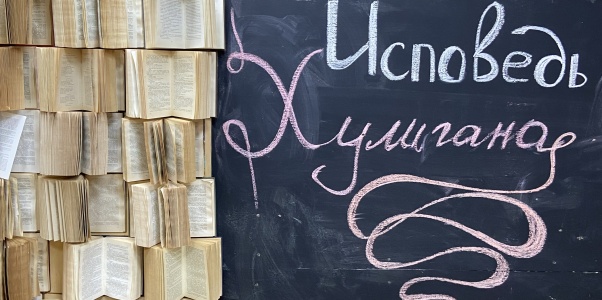 Исповедь
Хулигана